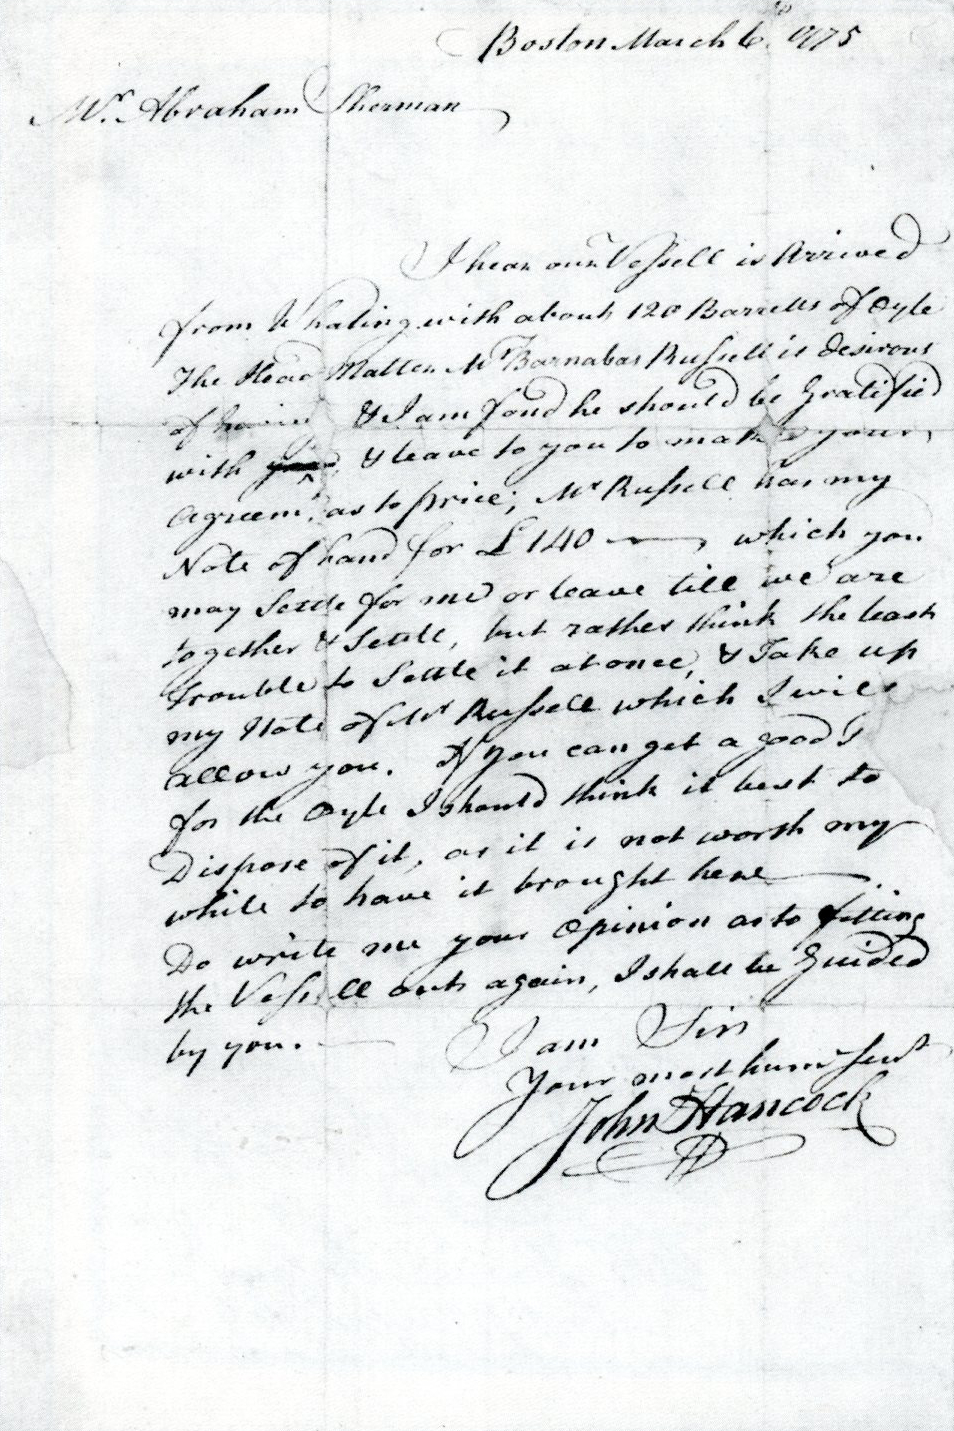 Boston March 6. 1775
Mr. Abraham Sherman
I hear our Vessell is Arrived
from Whaling with about 120 Barrells of Oyle
The Head Matter Mr Barnabas Russell is desirous
of & I am fond he should be Gratified
with & leave to you to make your
Agreemt. as to price; Mr Russell has my
Note of hand for £140 which you
may Settle for me or leave till we are
together & Settle, but rather think the least
trouble to Settle it at once, & Take up
my Note of Mr Russell which I will
allow you. If you can get a good
for the Oyle I should think it best to
Dispose of it, as it is not worth my
while to have it brought here
Do write me your Opinion as to fitting
the Vessell out again, I shall be Guided
by you.
I am Sir
Your most hum Servt
John Hancock